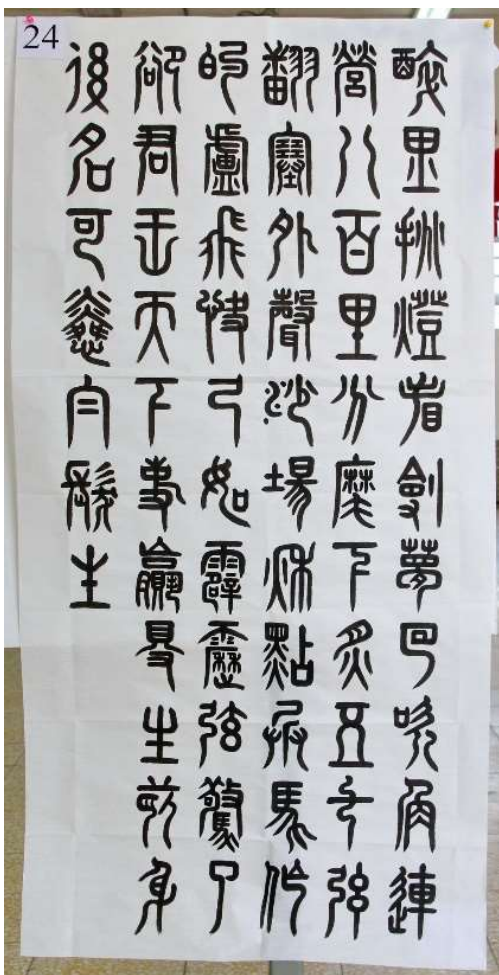 24
醉里挑燈看劍夢回吹角連
營八百里分麾下炙五十弦
翻塞外聲沙場秋點兵馬作
的盧飛快弓如霹靂弦驚了
卻君王天下事贏得生前身
後名可憐白髮生